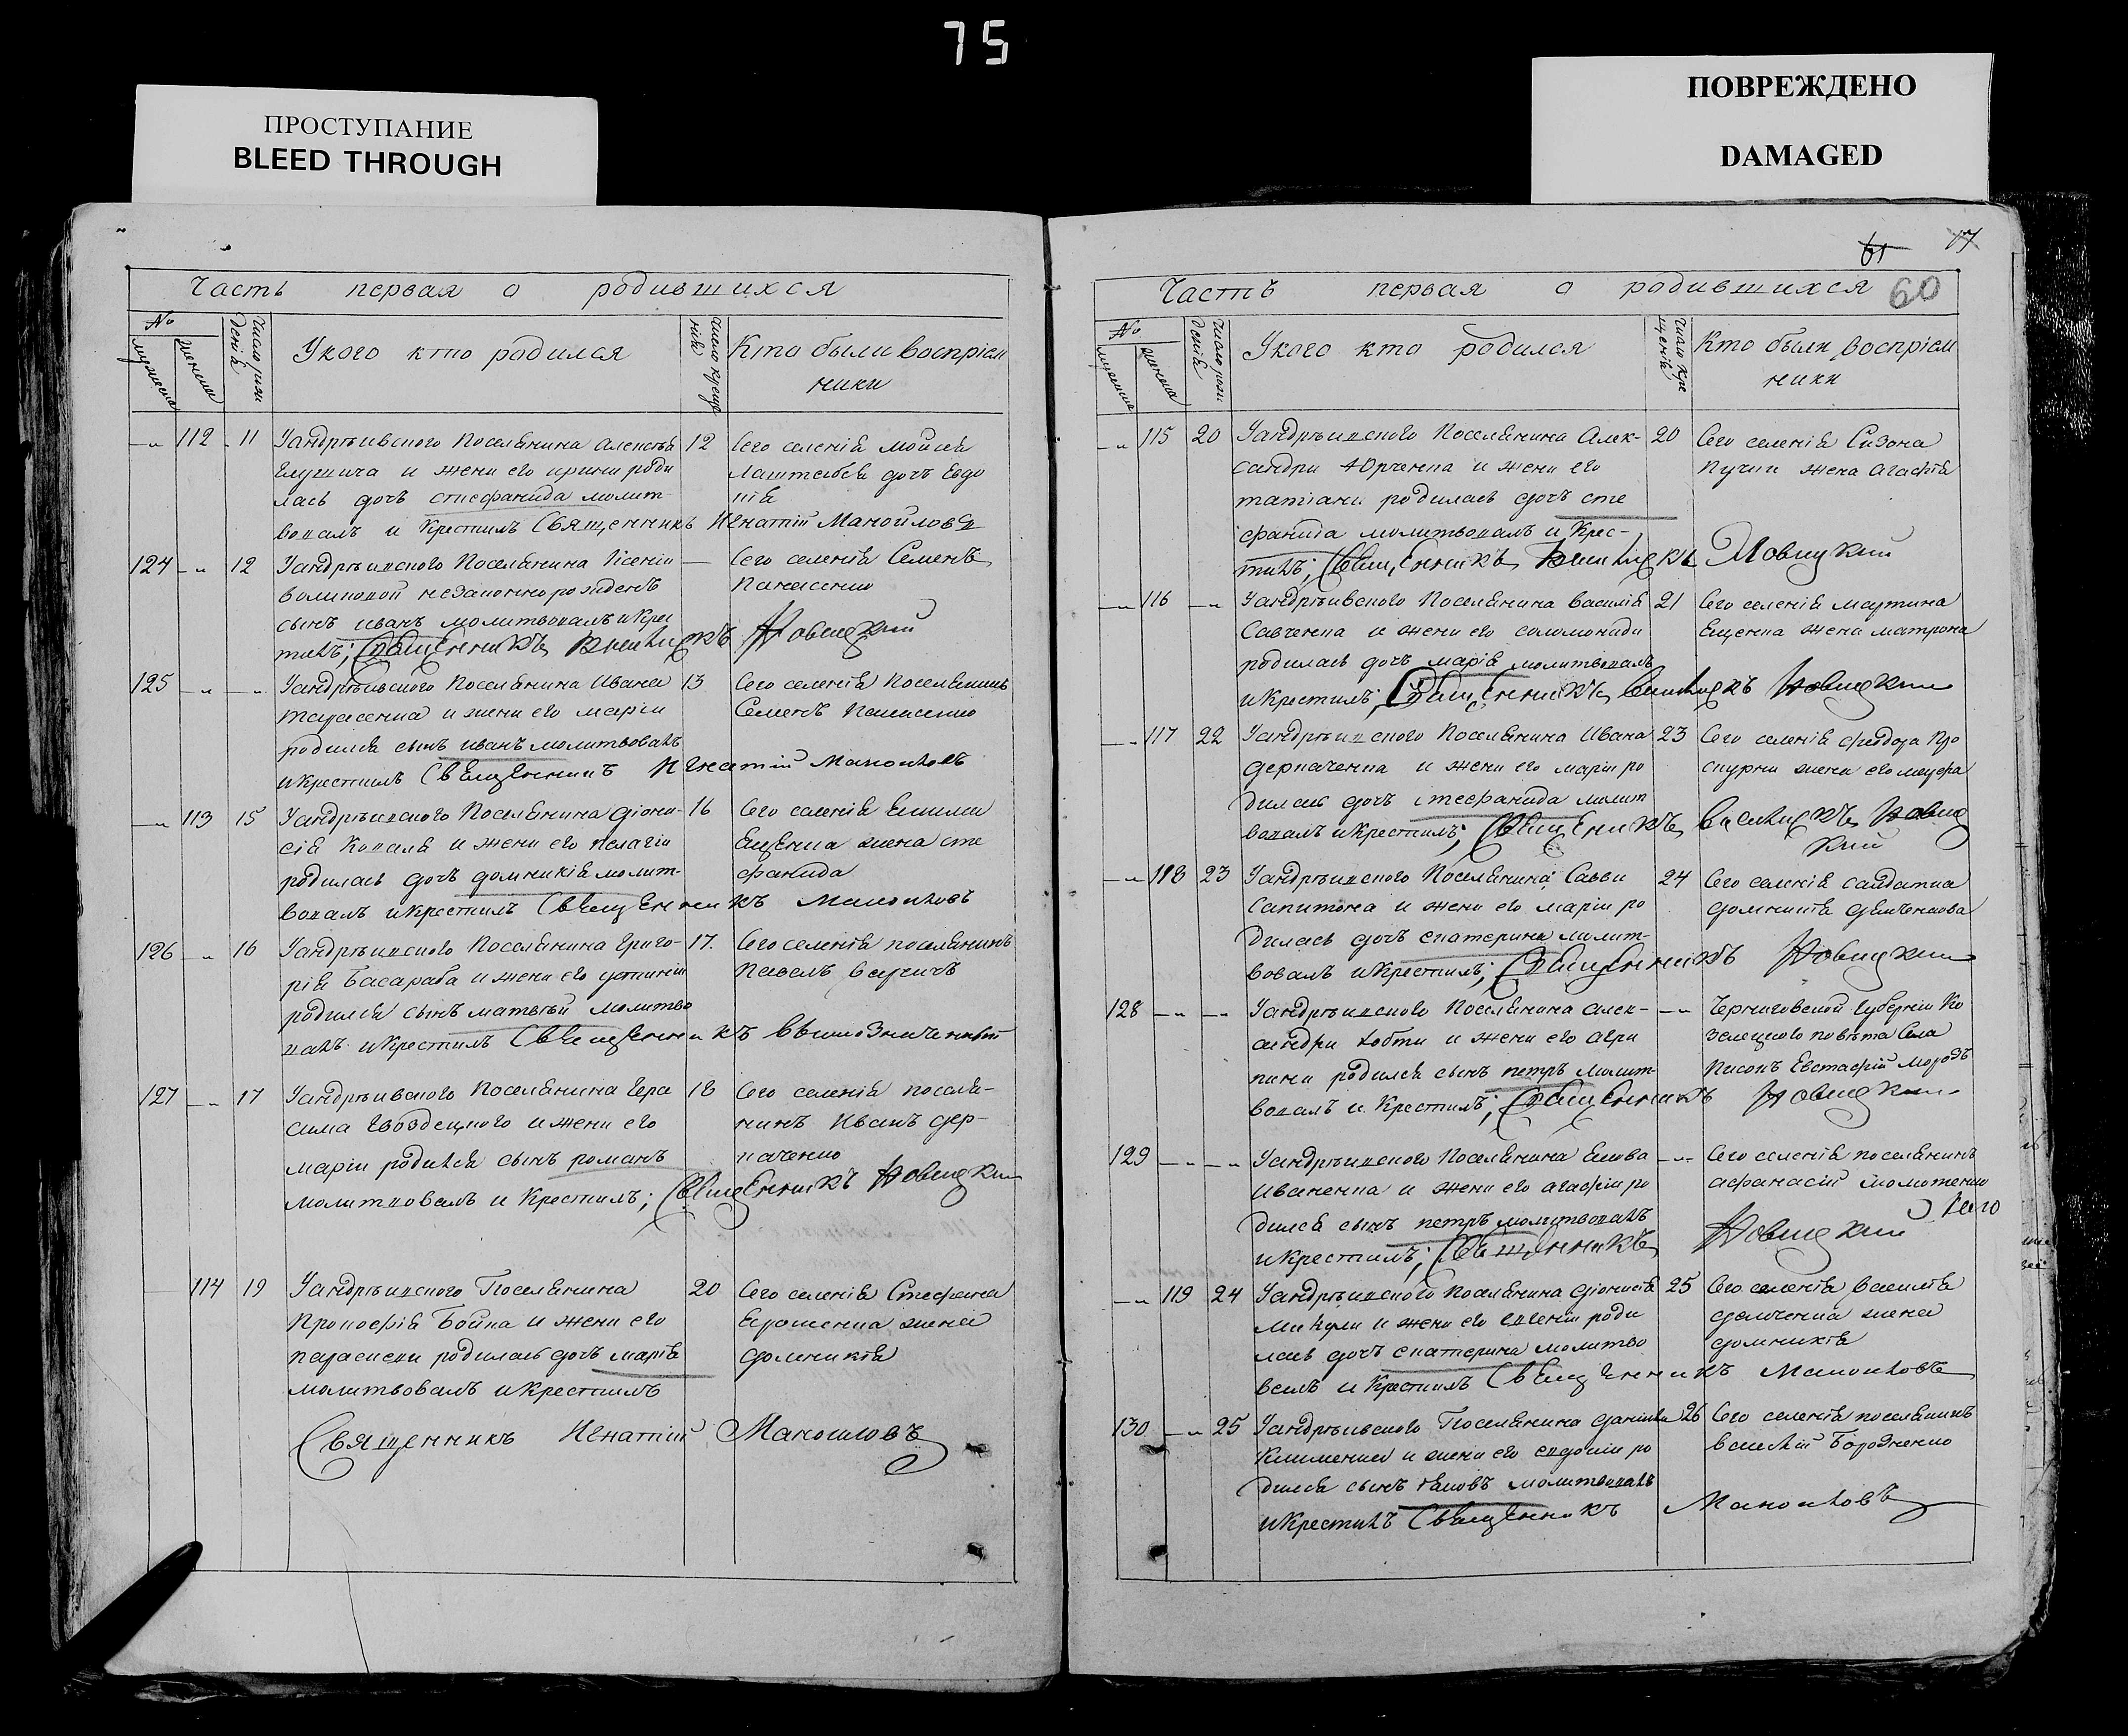 75
ПРОСТУПАНИЕ
BLEED THROUGH
ПОВРЕЖДЕНО
DAMAGED
Часть первая о родившихся
№
мужеска
женска
число рож
денія
У кого кто родился
число креще
нія
Кто были воспріем
ники
112 11 12
У андрѣивского Поселянина
и жени его ирини роди
лась дочъ стефанида молит-
вовалъ и Крестилъ Священникъ Игнатій Манойловъ
Сего селенія мойсея
дочъ Евдо
кія
124 12
У андрѣивского Поселянина
незаконнорожденъ
сынъ иванъ молитвовалъ и Крес
тилъ; Священникъ Новицкий
Сего селенія Семенъ
Панасенко
125 13
У андрѣивского Поселянина Ивана
Тарасенка и жени его маріи
родился сынъ иванъ молитвовалъ
и крестилъ Священникъ Игнатій Манойловъ
Сего селенія Поселянинъ
Семенъ Панасенко
113 15 16
У андрѣивского Поселянина діони-
сія Коваля и жени его пелагіи
родилась дочъ домникія молит-
вовалъ и крестилъ Священникъ Манойловъ
Сего селенія
Ещенка жена сте
фанида
126 16 17.
У андрѣивского Поселянина Григо-
рія Басараба и жени его устиніи
родился сынъ матвѣй молитво
валъ и крестилъ Священникъ
Сего селенія поселянинъ
павелъ
127 17 18
У андрѣивского Поселянина Гера
сима Гвоздецкого и жени его
маріи родился сынъ романъ
молитвовалъ и Крестилъ; Священникъ Новицкий
Сего селенія поселя-
нинъ Иванъ дер-
каченко
114 19 20
У андрѣивского Поселянина
Прокофія Бойка и жени его
параскеви родилась дочъ марія
молитвовалъ и Крестилъ
Священникъ Игнатій Манойловъ
Сего селенія Стефана
Ерошенка жена
домникія
61 17
60
Часть первая о родившихся
№
мужеска
женска
число рож
денія
У кого кто родился
число кре
щенія
Кто были воспріем
ники
115 20 20
У андрѣивского Поселянина Алек-
сандри Юрченка и жени его
татіани родилась дочъ сте
фанида молитвовалъ и Крес-
тилъ; Священникъ Новицкий
Сего селенія Сизона
жена Агафія
116 21
У андрѣивского Поселянина василія
Савченка и жени его соломониди
родилась дочъ марія молитвовалъ
и Крестилъ; Священникъ Новицкий
Сего селенія мартина
Ещенка жена матрона
117 22 23
У андрѣивского Поселянина Ивана
деркаченка и жени его маріи ро
дилась дочъ стефанида молит
вовалъ и Крестилъ; Священикъ Новиц
кий
Сего селенія феодора Про
скурни жена его
118 23 24
У андрѣивского Поселянина Савви
Капитона и жени его маріи ро
дилась дочъ екатерина молит-
вовалъ и Крестилъ; Священникъ Новицкий
Сего селенія салдатка
домникія
128
У андрѣивского Поселянина алек-
сандри и жени его агри
пини родился сынъ петръ молит-
вовалъ и Крестилъ; Священникъ Новицкий
Черниговской Губерніи Ко
зелецкого повѣта Села
Евстафій
129
У андрѣивского Поселянина Якова
Иваненка и жени его агафіи ро
дился сынъ петръ молитвовалъ
и крестилъ; Священникъ Новицкий
Сего селенія поселянинъ
афанасій
119 24 25
У андрѣивского Поселянина діонисія
Микули и жени его евгеніи роди
лась дочъ екатерина молитво
валъ и Крестилъ Священникъ Манойловъ
Сего селенія василія
жена
домникія
130 25 26
У андрѣивского Поселянина даніила
Клименка и жени его евдокіи ро
дился сынъ яковъ молитвовалъ
и Крестилъ Священникъ Манойловъ
Сего селенія поселянинъ
василій Бородченко